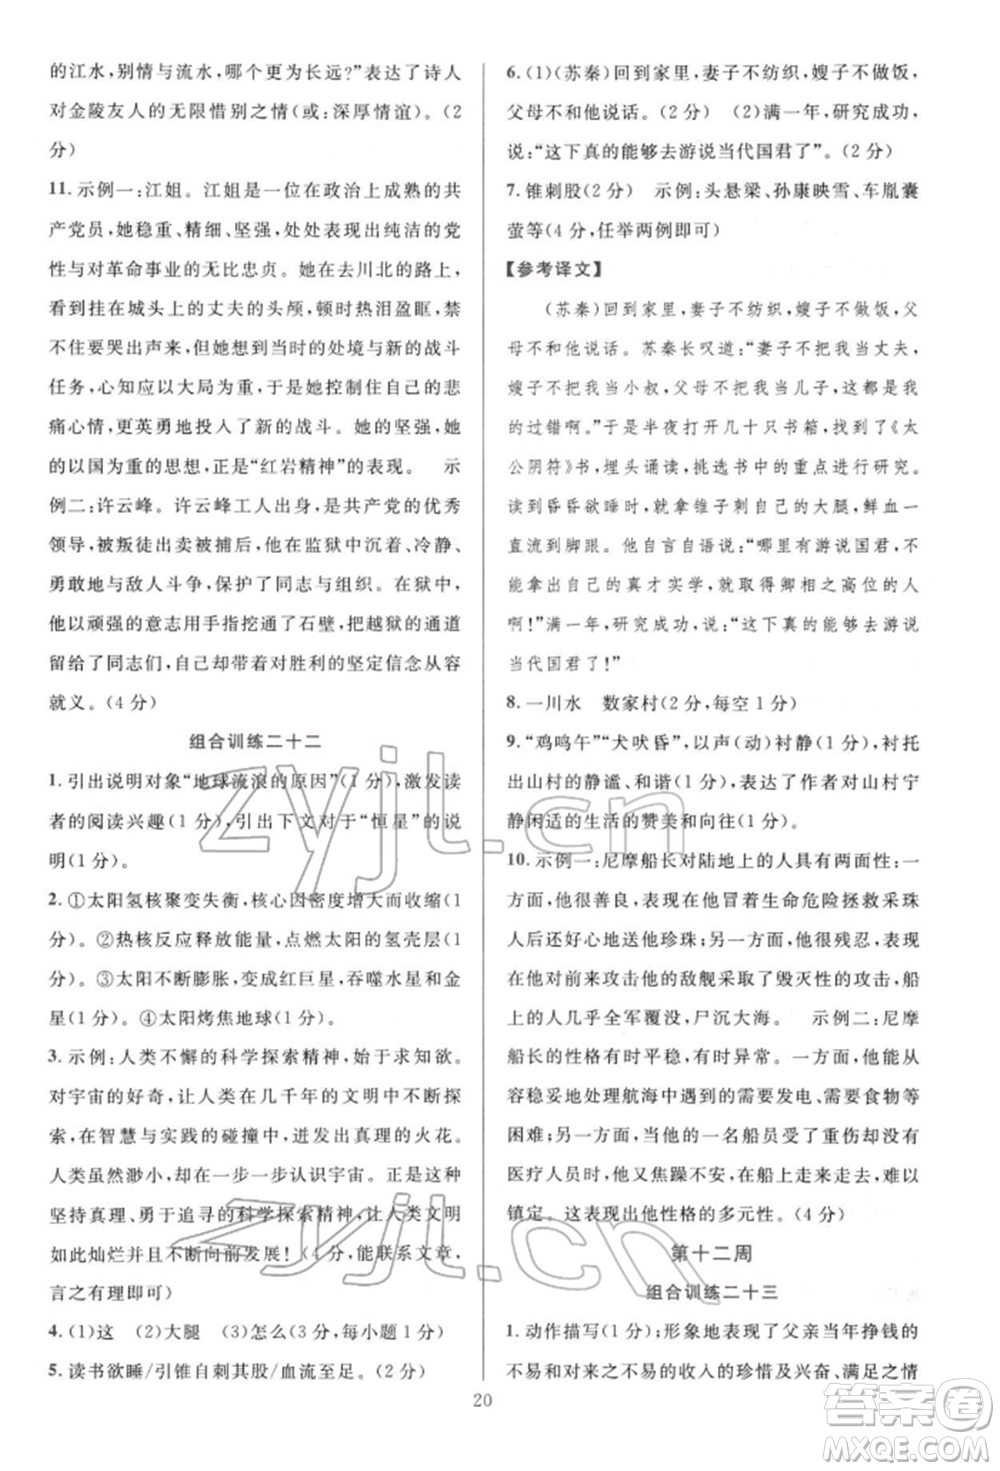 的江水,别情与流水,哪个更为长远?”表达了诗人
对金陵友人的无限惜别之情(或:深厚情谊)。(2
分)
11. 示例一:江姐。江姐是一位在政治上成熟的共
产党员,她稳重、精细、坚强,处处表现出纯洁的党
性与对革命事业的无比忠贞。她在去川北的路上,
看到挂在城头上的丈夫的头颅,顿时热泪盈眶,禁
不住要哭出声来。但她想到当时的处境与新的战斗
任务,心知应以大局为重,于是她控制住自己的悲
痛心情,更英勇地投入了新的战斗。她的坚强,她
的以国为重的思想,正是“红岩精神”的表现。 示
例二:许云峰。许云峰工人出身,是共产党的优秀
领导,被叛徒出卖被捕后,他在监狱中沉着、冷静、
勇敢地与敌人斗争,保护了同志与组织。在狱中,
他以顽强的意志用手指挖通了石壁,把越狱的通道
留给了同志们,自己却带着对胜利的坚定信念从容
就义。(4 分)
组合训练二十二
1. 引出说明对象“地球流浪的原因”(1 分),激发读
者的阅读兴趣(1 分),引出下文对于“恒星”的说
明(1 分)。
2. ①太阳氢核聚变失衡,核心由于重力而收缩(1
分)。②热核反应释放能量,点燃太阳的氢壳层(1
分)。③太阳不断膨胀,变成红巨星,吞噬水星和金
星(1 分)。④太阳烤焦地球(1 分)。
3. 示例:人类不懈的科学探索精神,始于求知欲。
对宇宙的好奇,让人类在几千年的文明中不断探
索,在智慧与实践的碰撞中,迸发出真理的火花。
人类虽然渺小,却在一步一步认识宇宙。正是这种
坚持真理、勇于追寻的科学探索精神,让人类文明
如此灿烂并且不断向前发展!(3 分,能联系文章,
言之有理即可)
4. (1)这 (2)大腿 (3)怎么(3 分,每小题 1 分)
5. 读书欲睡/引锥自刺其股/血流至足。(2 分)
6. (1)(苏秦)回到家里,妻子不纺织,嫂子不做饭,
父母不和他说话。(2 分) (2)满一年,研究成功,
说:“这下真的能够去游说当代国君了!”(2 分)
7. 锥刺股(2 分) 示例:头悬梁、孙康映雪、车胤囊
萤等(4 分,任举两例即可)
【参考译文】
(苏秦)回到家里,妻子不纺织,嫂子不做饭,父
母不和他说话。苏秦长叹道:“妻子不把我当丈夫,
嫂子不把我当小叔,父母不把我当儿子,这都是我
的过错啊。”于是半夜打开几十只书箱,找到了《太
公阴符》书,埋头诵读,挑选书中的重点进行研究。
读到昏昏欲睡时,就拿锥子刺自己的大腿,鲜血一
直流到脚跟。他自言自语说:“哪里有游说国君,不
能拿出自己的真才实学,就取得卿相之高位的人
啊!”满一年,研究成功,说:“这下真的能够去游说
当代国君了!”
8. 一川水 数家村(2 分,每空 1 分)
9. “鸡鸣午”“犬吠昏”,以声(动)衬静(1 分),衬托
出山村的静谧、和谐(1 分),表达了作者对山村宁
静闲适的生活的赞美和向往(1 分)。
10. 示例一:尼摩船长对陆地上的人具有两面性:一
方面,他很善良,在大海里冒着生命危险拯救采珠
人后还好心地送他珍珠;另一方面,他很残忍,表现
在他对前来攻击他的敌舰采取了毁灭性的攻击,船
上的人几乎全军覆没,尸沉大海。 示例二:尼摩
船长的性格有时平稳,有时又多变。一方面,他从
容稳妥地处理航海中遇到的需要发电、需要食物等
困难;另一方面,当他的一名船员受了重伤却又没
医疗人员时,他又焦躁不安,在船上走来走去,难以
镇定。这表现出他性格的多元性。(4 分)
第十二周
组合训练二十三
1. 动作描写(1 分);形象地表现了父亲当年挣钱的
不易和对来之不易的收入的珍惜及兴奋、满足之情
20
zyjl.cn
zyjl.cn
答案卷
MXQE.COM